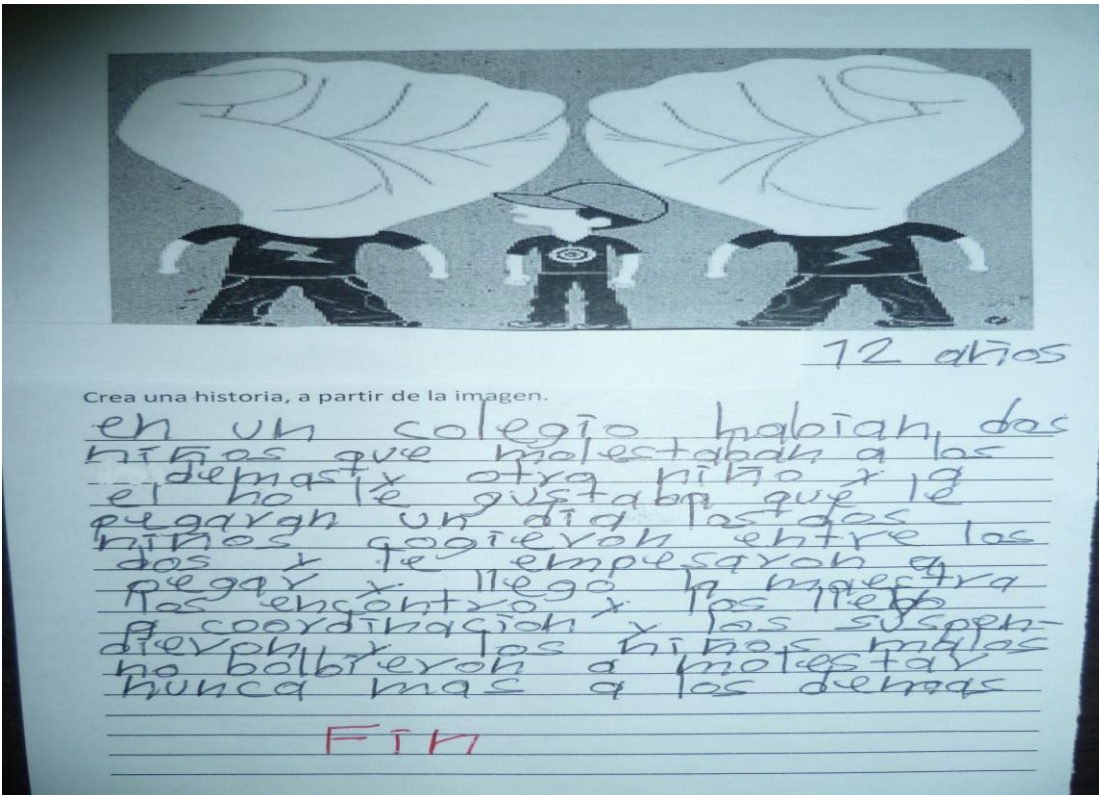 12 años
Crea una historia, a partir de la imagen.
en un colegio habian dos
niños que molestaban a los
demas y otra niño y a
el no le gustaba que le
pegaran un dia los dos
niños gogieron entre los
dos y le empesaron a
pegar y llego la maestra
los encontro y los llevo
a coordinacion y los suspen-
dieron y los niños malos
no bolbieron a molestar
nunca mas a los demas
Fin